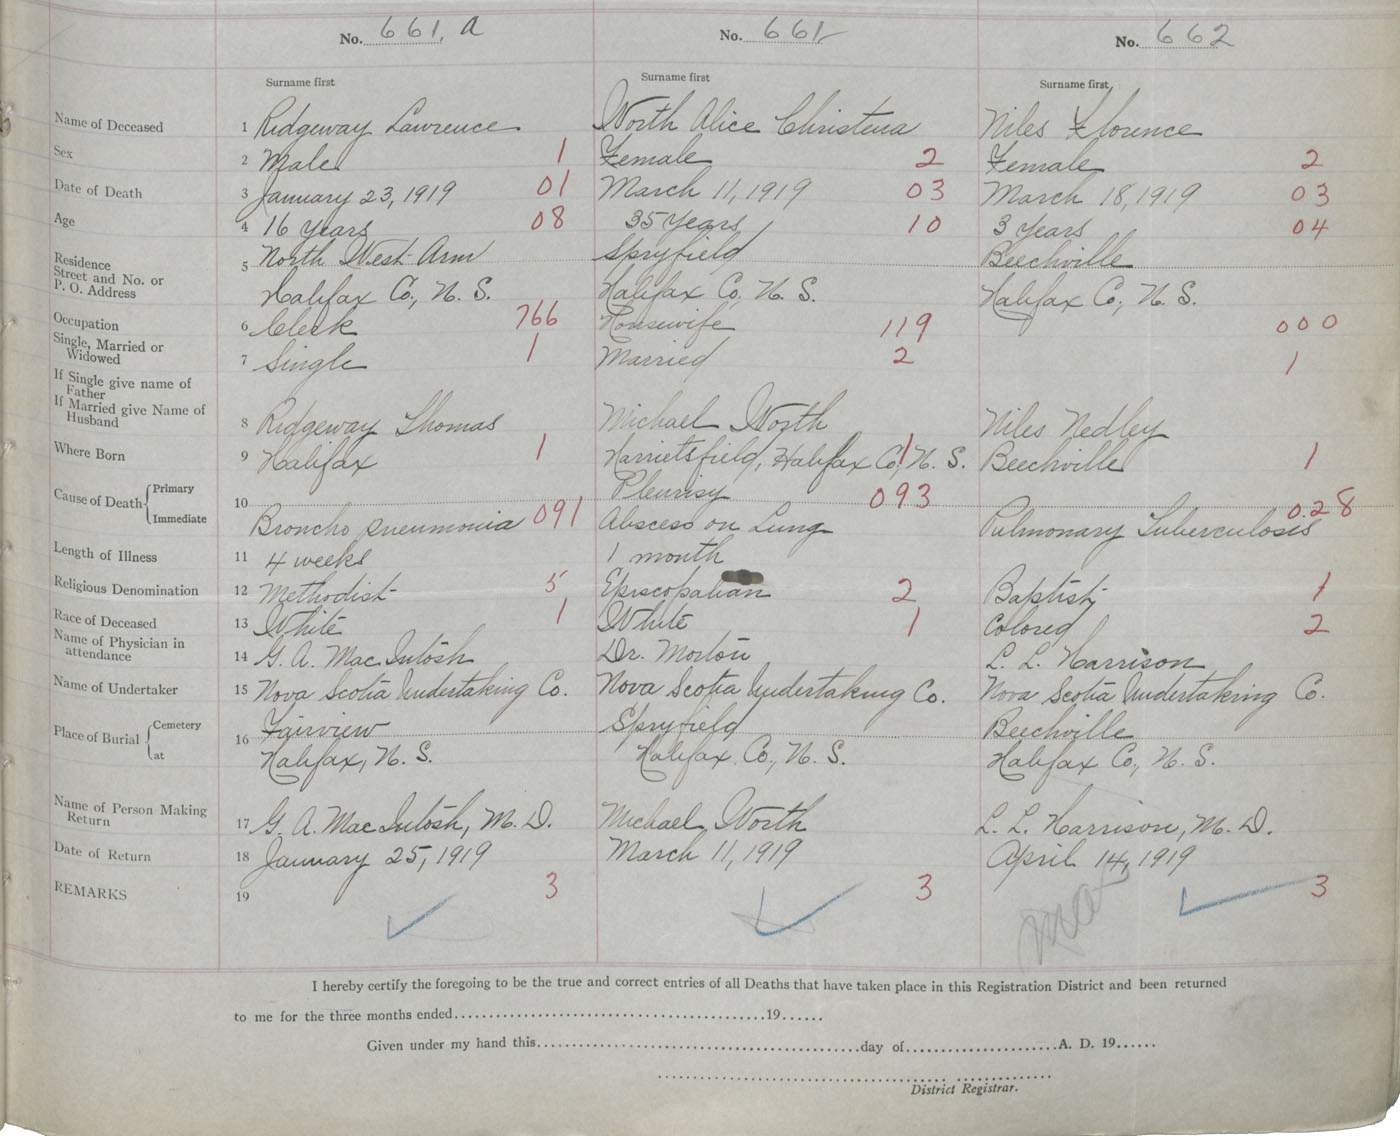 No. 661. a No. 661 No. 662
Surname first Surname first Surname first
Name of Deceased 1 Ridgeway Lawrence North Alice Christena Niles Florence
Sex 2 Male 1 Female 2 Female 2
Date of Death 3 January 23, 1919 01 March 11, 1919 03 March 18, 1919 03
Age 4 16 years 08 35 years 10 3 years 04
Residence
Street and No. or
P. O. Address
5 North West Arm Spryfield Beechville
Halifax Co., N. S. Halifax Co, N. S. Halifax Co, N. S.
Occupation 6 Clerk 766 Housewife 119 000
Single, Married or
Widowed
7 Single 1 Married 2 1
If Single give name of
Father
If Married give Name of
Husband
8 Ridgeway Thomas Michael North Niles Nedley
Where Born 9 Halifax 1 Harrietsfield, Halifax Co, N. S. 1 Beechville 1
Cause of Death Primary 10 Pleurisy 093 0.28
Immediate Broncho pneumonia 091 Abscess on Lung Pulmonary Tuberculosis
Length of Illness 11 4 weeks 1 month
Religious Denomination 12 Methodist 5 Episcopalian 2 Baptist 1
Race of Deceased 13 White 1 White 1 Colored 2
Name of Physician in
attendance
14 G. A. MacIntosh Dr. Morton L. L. Harrison
Name of Undertaker 15 Nova Scotia Undertaking Co. Nova Scotia Undertaking Co. Nova Scotia Undertaking Co.
Place of Burial Cemetery 16 Fairview Spryfield Beechville
at Halifax, N. S. Halifax Co., N. S. Halifax Co., N. S.
Name of Person Making
Return
17 G. A. MacIntosh, M. D. Michael North L. L. Harrison, M. D.
Date of Return 18 January 25, 1919 March 11, 1919 April 14, 1919
REMARKS 19 3 3 3
I hereby certify the foregoing to be the true and correct entries of all Deaths that have taken place in this Registration District and been returned
to me for the three months ended 19
Given under my hand this day of A. D. 19
District Registrar.